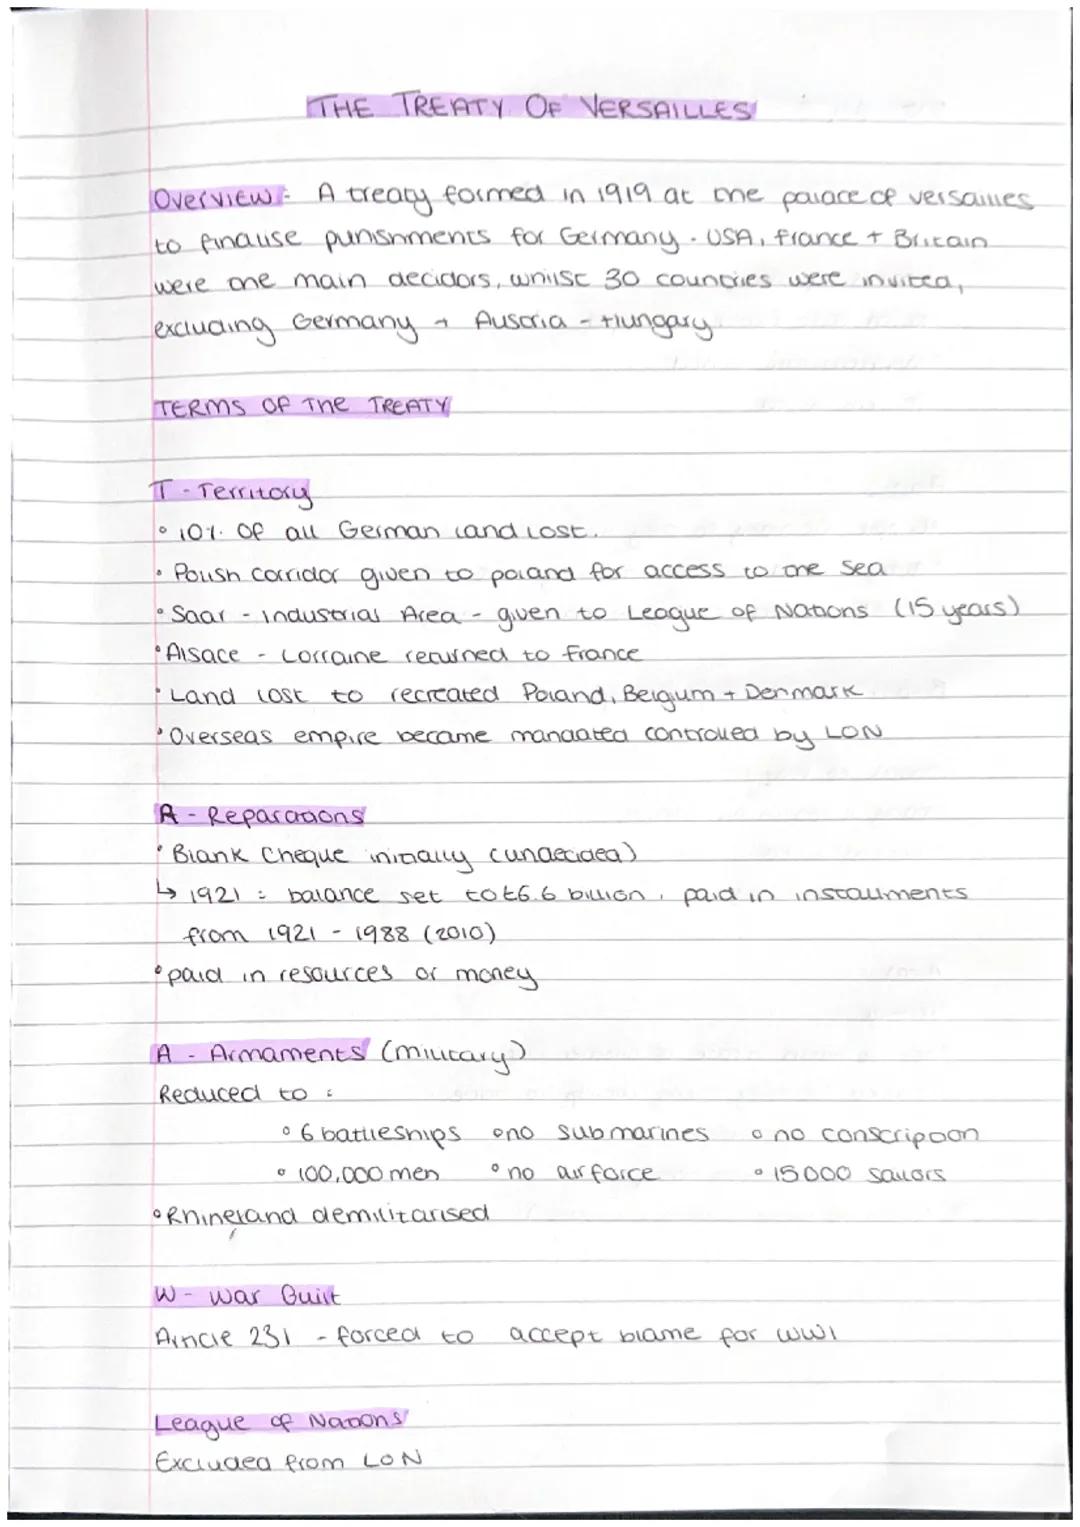 THE TREATY OF VERSAILLES
Overview:- A treaty formed in 1919 at the palace of versailles
to finalise punishments for Germany. USA, france + Britain
were the main decidors, whilst 30 countries were invited,
excluding Germany + Austria - Hungary
TERMS OF THE TREATY
T - Territory
• 10% of all German land lost.
• Polish corridor given to poland for access to the sea
• Saar - industrial Area - given to League of Nations (15 years)
• Alsace - Lorraine returned to france
• Land lost to recreated Poland, Belgium + Denmark
• Overseas empire became mandated controlled by LON
R - Reparations
• Blank Cheque initially (undecided)
↳ 1921 : balance set to £6.6 billion, paid in installments
from 1921 - 1988 (2010)
• paid in resources or money
A - Armaments (military)
Reduced to :
• 6 battleships • no submarines • no conscription
• 100,000 men • no airforce • 15000 sailors
• Rhineland demilitarised
W - War Guilt
Article 231 - forced to accept blame for WW1
League of Nations
Excluded from LON